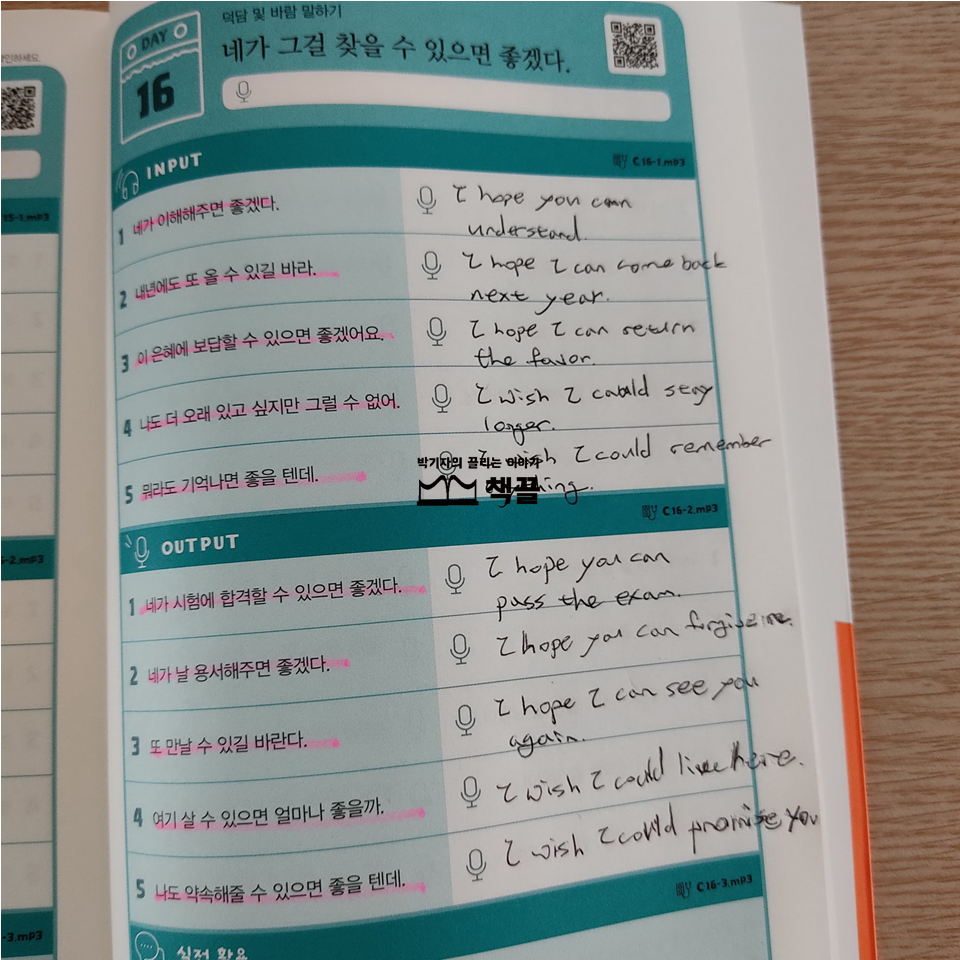 덕담 및 바람 말하기
DAY
16
네가 그걸 찾을 수 있으면 좋겠다.
INPUT
C16-1.mp3
1 네가 이해해주면 좋겠다.
I hope you can
understand.
2 내년에도 또 올 수 있길 바라.
I hope I can come back
next year.
3 이 은혜에 보답할 수 있으면 좋겠어요.
I hope I can return
the favor.
4 나도 더 오래 있고 싶지만 그럴 수 없어.
I wish I could stay
longer.
5 뭐라도 기억나면 좋을 텐데.
wish I could remember
박기자의 끌리는 이야기
책끌
OUTPUT
C16-2.mp3
1 네가 시험에 합격할 수 있으면 좋겠다.
I hope you can
pass the exam.
2 네가 날 용서해주면 좋겠다.
I hope you can forgive me.
3 또 만날 수 있길 바란다.
I hope I can see you
again.
4 여기 살 수 있으면 얼마나 좋을까.
I wish I could live here.
5 나도 약속해줄 수 있으면 좋을 텐데.
I wish I could promise you
C16-3.mp3
실전 활용
15-1.mp3
5-2.mp3
-3.mp3